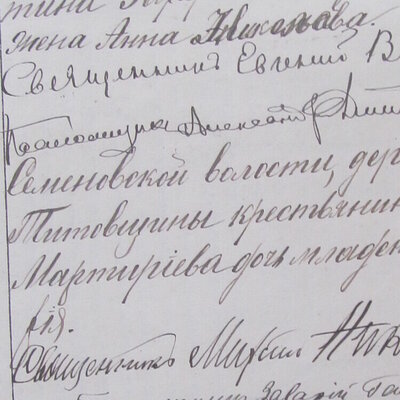 жена Анна Николаева.
Священникъ Евгений В
Псаломщикъ Алексий
Семеновской волости, дер
Титовщины крестьянин
Мартиріева дочь младен
рія.
Священникъ Михаил Ник
Заварій